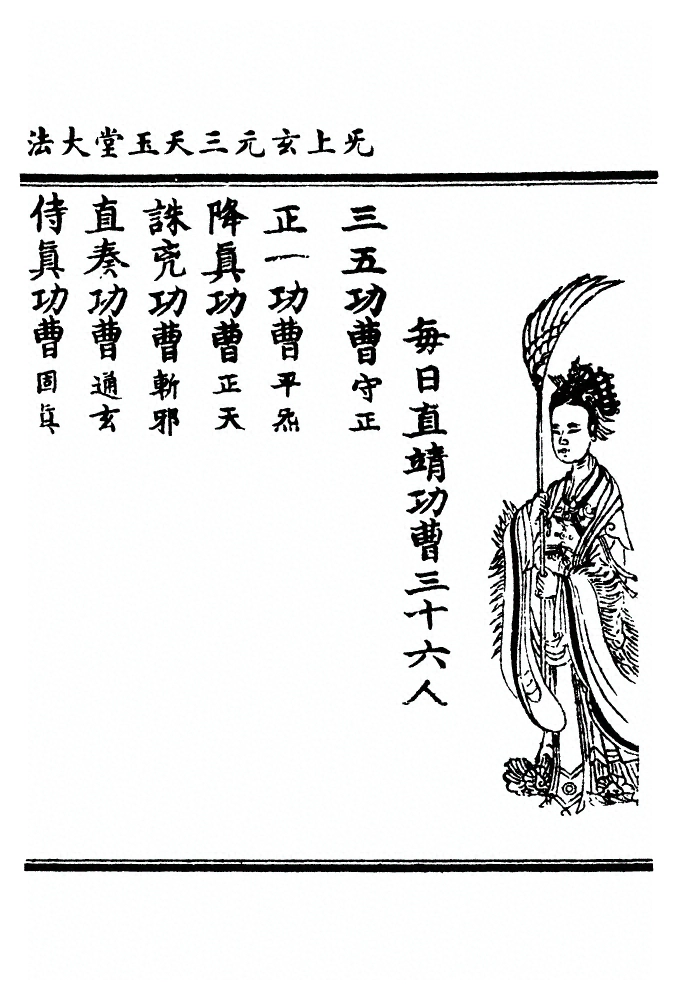 无上玄元三天玉堂大法
每日直靖功曹三十六人
三五功曹守正
正一功曹平炁
降眞功曹正天
誅兇功曹斬邪
直奏功曹通玄
侍眞功曹固眞